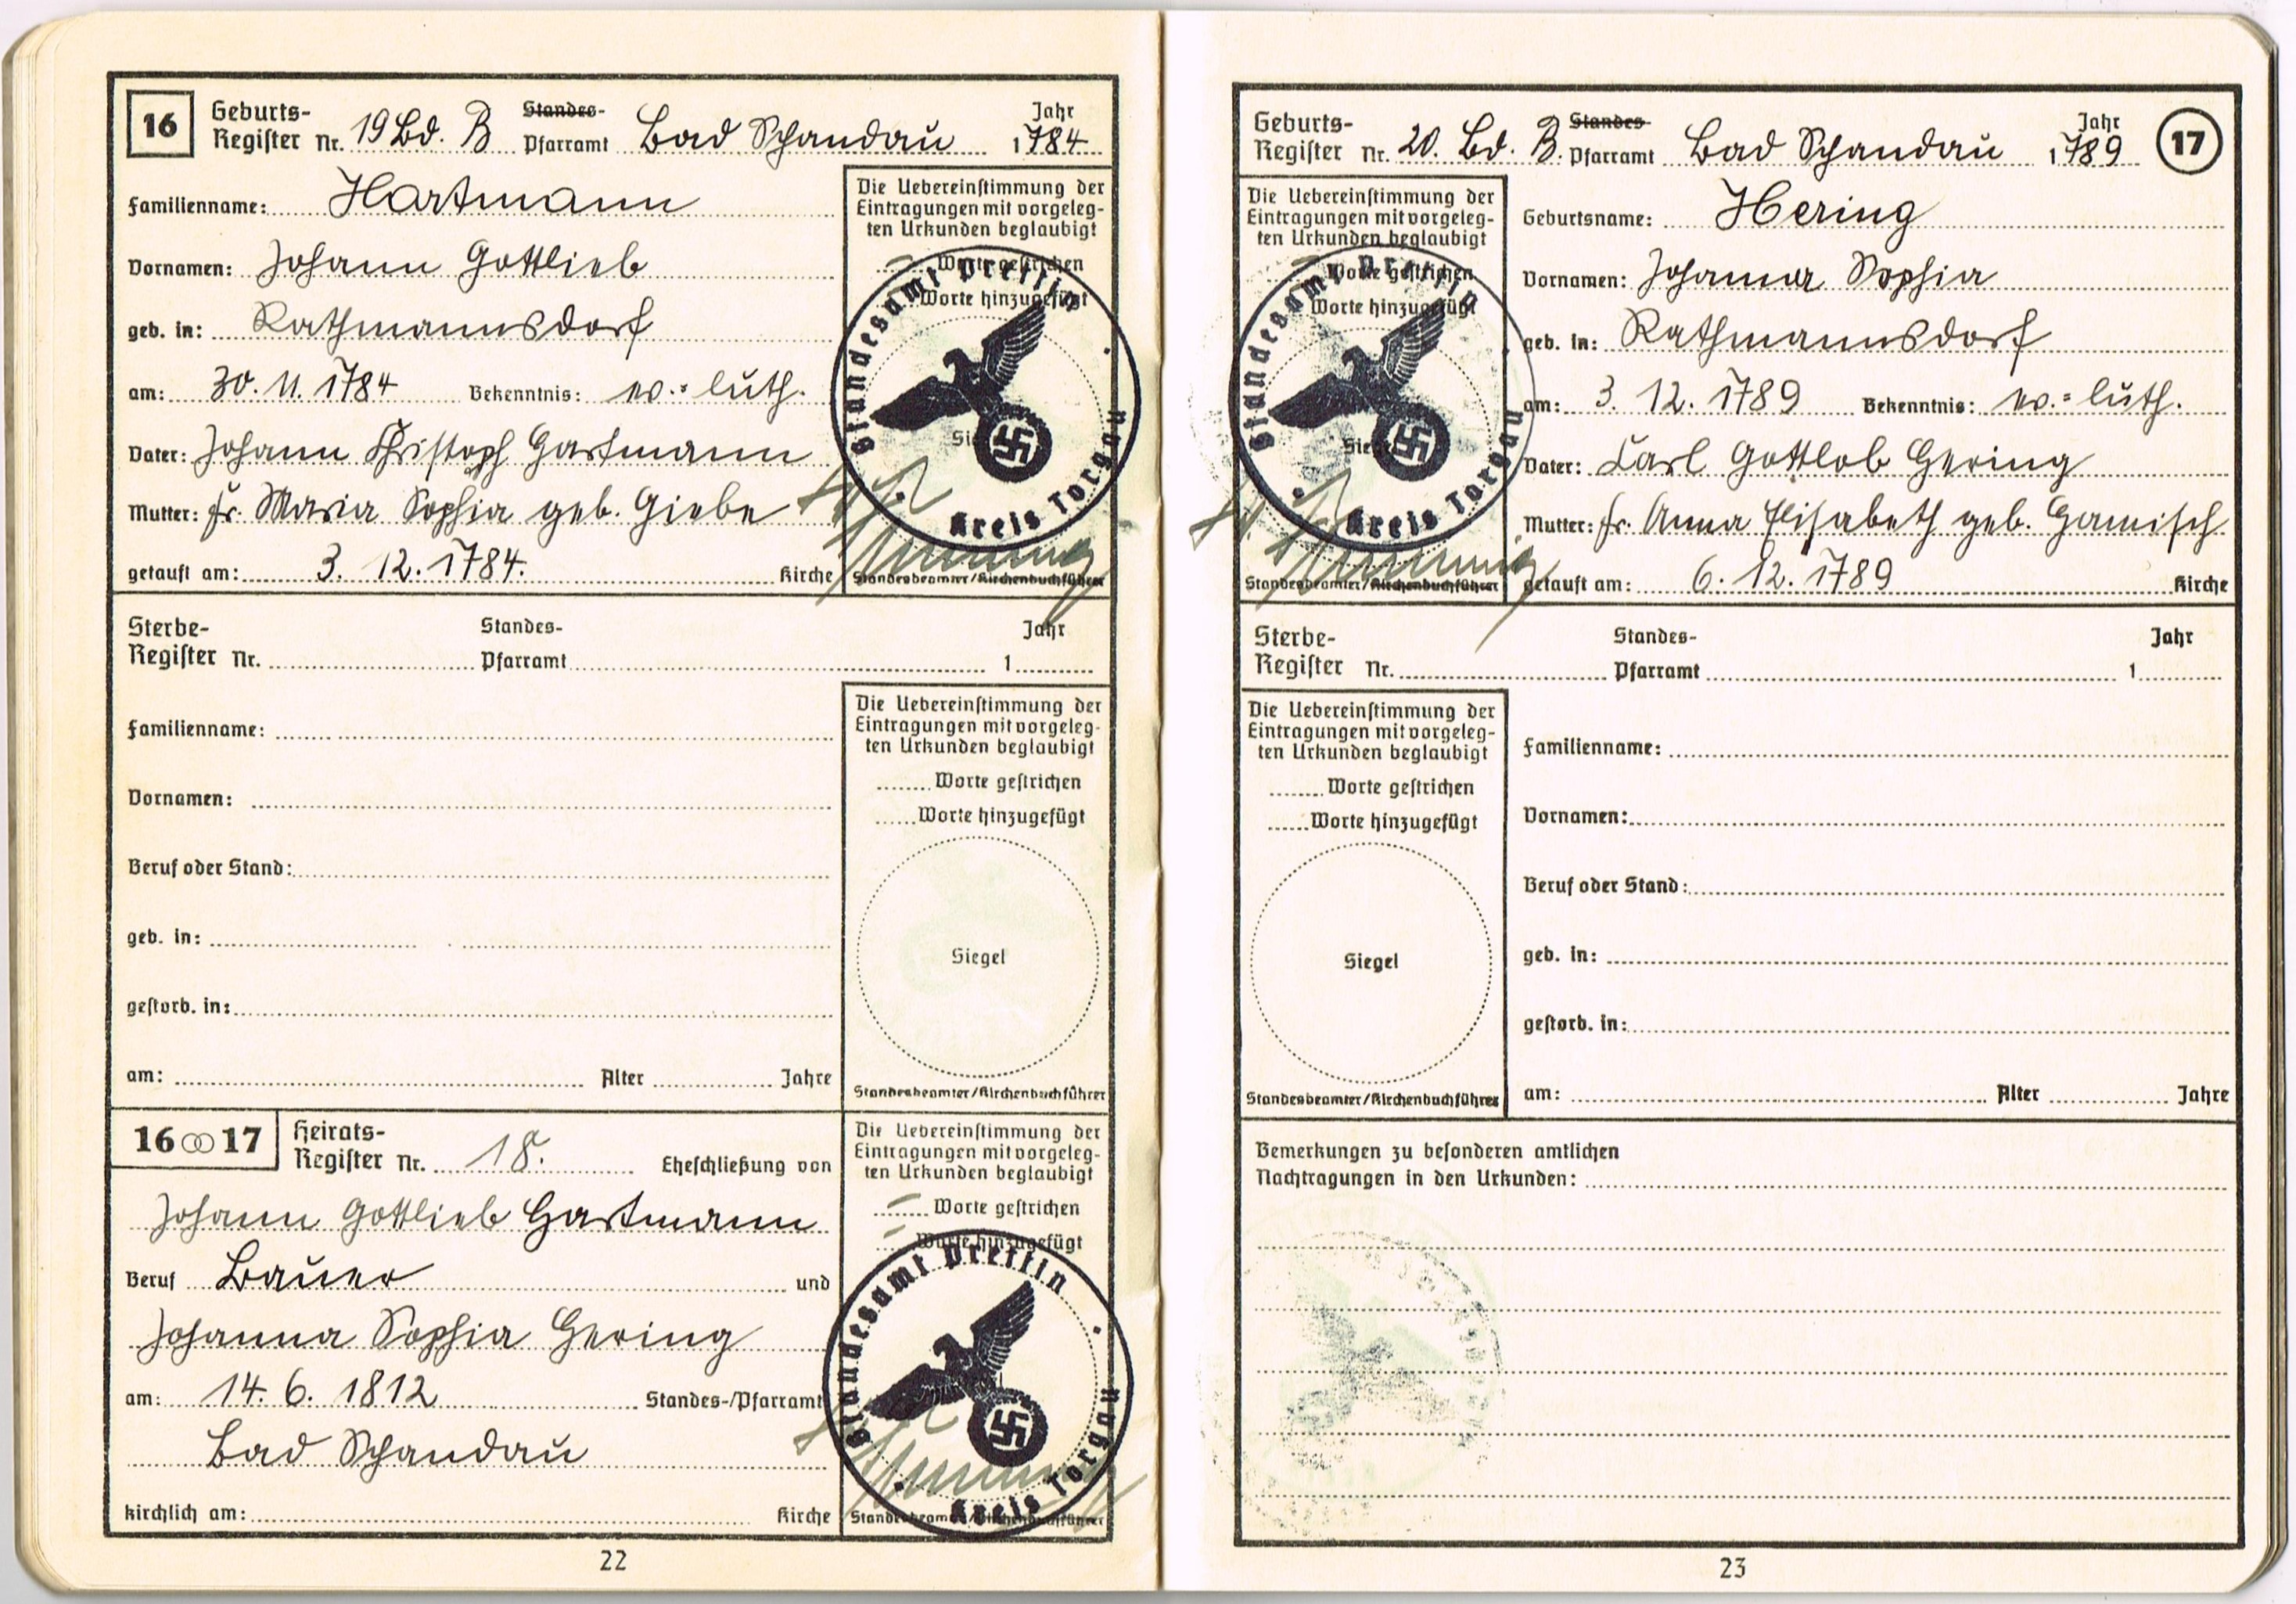 16 Geburts- Standes- Jahr
Register Nr. 19 Bd. B Pfarramt Bad Schandau 1784
Familienname: Hartmann
Vornamen: Johann Gottlieb
geb. in: Rathmannsdorf
am: 30.11.1784 Bekenntnis: ev.-luth.
Vater: Johann Christoph Hartmann
Mutter: Fr. Maria Sophia geb. Giebe
getauft am: 3. 12. 1784. Kirche
Die Uebereinstimmung der
Eintragungen mit vorgeleg-
ten Urkunden beglaubigt
Worte gestrichen
Worte hinzugefügt
Standesamt Prettin
Kreis Torgau
Standesbeamter/Kirchenbuchführer
Sterbe- Standes- Jahr
Register Nr. Pfarramt 1
Familienname:
Vornamen:
Beruf oder Stand:
geb. in:
gestorb. in:
am: Alter Jahre
Die Uebereinstimmung der
Eintragungen mit vorgeleg-
ten Urkunden beglaubigt
Worte gestrichen
Worte hinzugefügt
Siegel
Standesbeamter/Kirchenbuchführer
16 ⚭ 17 Heirats-
Register Nr. 18. Eheschließung von
Johann Gottlieb Hartmann
Beruf Bauer und
Johanna Sophia Hering
am: 14. 6. 1812 Standes-/Pfarramt
Bad Schandau
kirchlich am: Kirche
Die Uebereinstimmung der
Eintragungen mit vorgeleg-
ten Urkunden beglaubigt
Worte gestrichen
Worte hinzugefügt
Standesamt Prettin
Kreis Torgau
Standesbeamter/Kirchenbuchführer
22
Geburts- Standes- Jahr 17
Register Nr. 20. Bd. B. Pfarramt Bad Schandau 1789
Die Uebereinstimmung der
Eintragungen mit vorgeleg-
ten Urkunden beglaubigt
Worte gestrichen
Worte hinzugefügt
Siegel
Standesamt Prettin
Kreis Torgau
Standesbeamter/Kirchenbuchführer
Geburtsname: Hering
Vornamen: Johanna Sophia
geb. in: Rathmannsdorf
am: 3. 12. 1789 Bekenntnis: ev.-luth.
Vater: Carl Gottlob Hering
Mutter: Fr. Anna Elisabeth geb. Hamisch
getauft am: 6. 12. 1789 Kirche
Sterbe- Standes- Jahr
Register Nr. Pfarramt 1
Die Uebereinstimmung der
Eintragungen mit vorgeleg-
ten Urkunden beglaubigt
Worte gestrichen
Worte hinzugefügt
Siegel
Standesbeamter/Kirchenbuchführer
Familienname:
Vornamen:
Beruf oder Stand:
geb. in:
gestorb. in:
am: Alter Jahre
Bemerkungen zu besonderen amtlichen
Nachtragungen in den Urkunden:
23